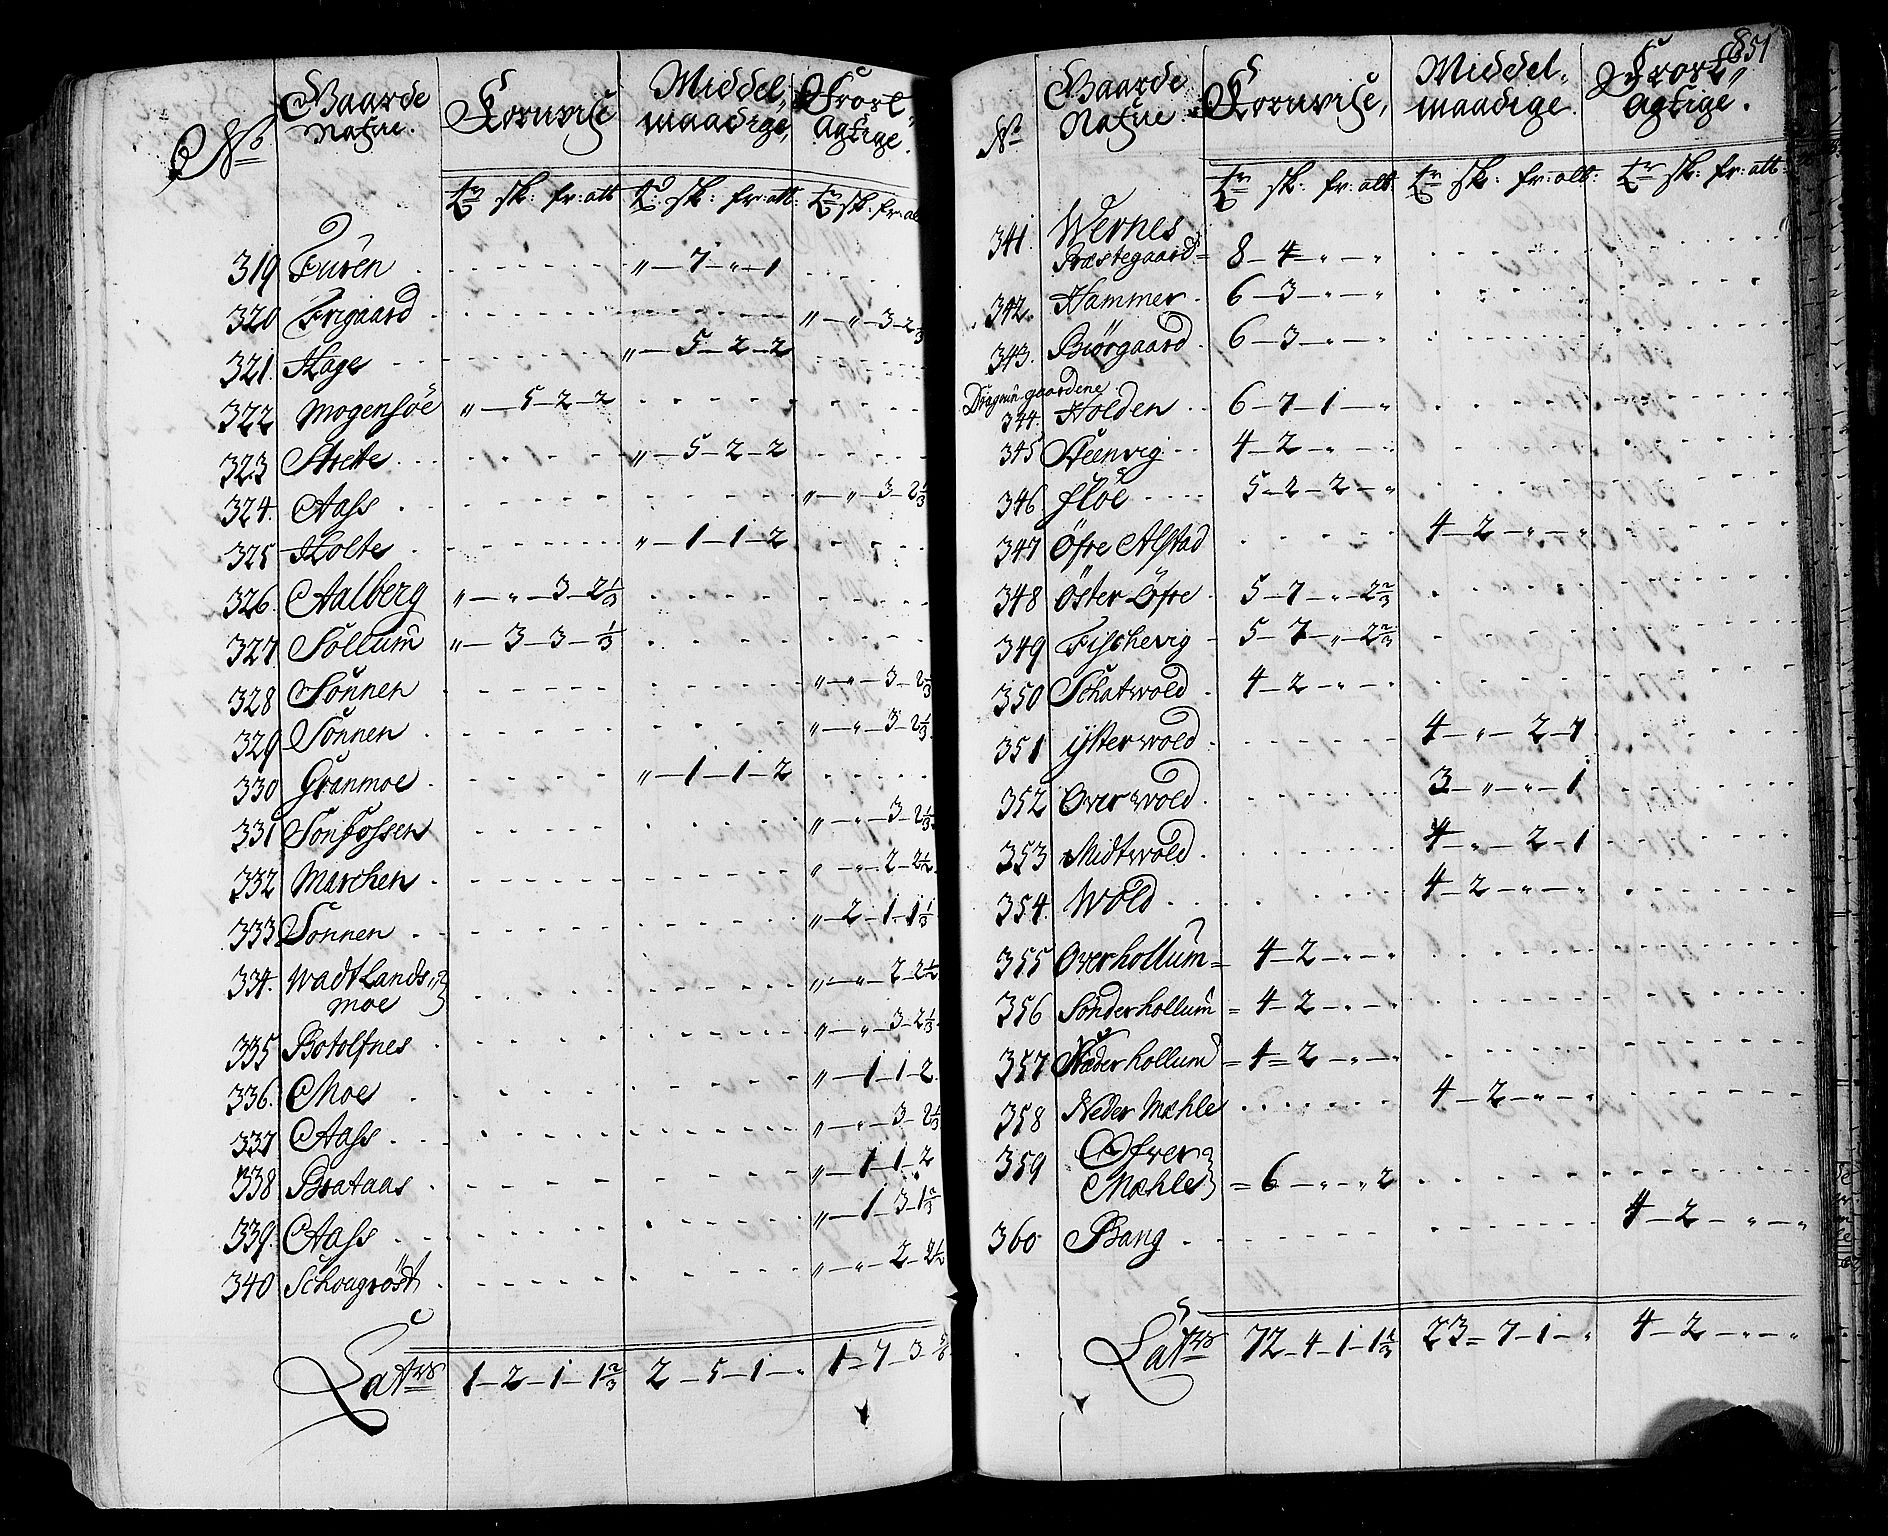 No
Gaarde
Nafne.
Kornvise
Middel„
maadige,
Frost„
Agtige.
tr sk: fr: alb tr: sk: fr: alb: tr sk: fr: al
319 Füren „ – 7 – „ – 1
320 Frigaard „ – „ – 3 – 2 1/3
321. Hage „ – 5 – 2 – 2
322 Mogensöe „ – 5 – 2 – 2
323 Strete „ – 5 – 2 – 2
324. Aass „ – „ – 3 – 2 1/3
325 Holte „ – 1 – 1 – 2
326. Aalberg „ – „ – 3 – 2 1/3
327 Sollum „ – 3 – 3 – 1/3
328 Sonnen „ – „ – 3 – 2 1/3
329 Sonnen „ – „ – 3 – 2 1/3
330 Granmoe „ – 1 – 1 – 2
331 Sonfossen „ – „ – 3 – 2 1/3
332 Marchen „ – „ – 2 – 2 1/2
333 Sonnen „ – 2 – 1 – 1 1/3
334. Wadtlands„
moe „ – „ – 2 – 2 1/2
335 Botolfnes „ – „ – 3 – 2 1/3
336. Moe „ – 1 – 1 – 2
337 Aass „ – „ – 3 – 2 1/3
338 Brataas „ – 1 – 1 – 2
339. Aass „ – 1 – 3 – 1 2/3
340 Schougröst „ – „ – 2 – 2 1/2
Latus 1 – 2 – 1 – 1 2/3 2 – 5 – 1 – „ 1 – 7 – 3 – 5/6
851
No
Gaarde
Nafne.
Kornvise,
Middel„
maadige.
Frost„
Agtige.
tr sk: fr: alb tr sk: fr: alb: tr sk: fr: alb:
341. Wernes
Præstegaard 8 – 4 – „ – „
342. Hammer 6 – 3 – „ – „
343. Biörgaard 6 – 3 – „ – „
Dragun gaardene
344. Holden 6 – 7 – 1 – „
345 Steenvig 4 – 2 – „ – „
346 Floe 5 – 2 – 2 – „
347 Öfre Alstad 4 – 2 – „ – „
348 Öster Öfre 5 – 7 – „ – 2 2/3
349 Fischevig 5 – 7 – „ – 2 2/3
350 Schatwold 4 – 2 – „ – „
351 ijsterwold 4 – „ – 2 – 1
352 Overwold 3 – „ – „ – 1
353 Midtwold 4 – „ – 2 – 1
354. Wold 4 – 2 – „ – „
355 Overhollum 4 – 2 – „ – „
356 Sönderhollum 4 – 2 – „ – „
357 Næderhollum 4 – 2 – „ – „
358 Neder Mæhle 4 – 2 – „ – „
359 Ofver
Mæhle 6 – „ – „ 2
360 Bang 4 – 2 – „ – „
Latus 72 – 4 – 1 – 1 1/3 23 – 7 – 1 – „ 4 – 2 – „ – „